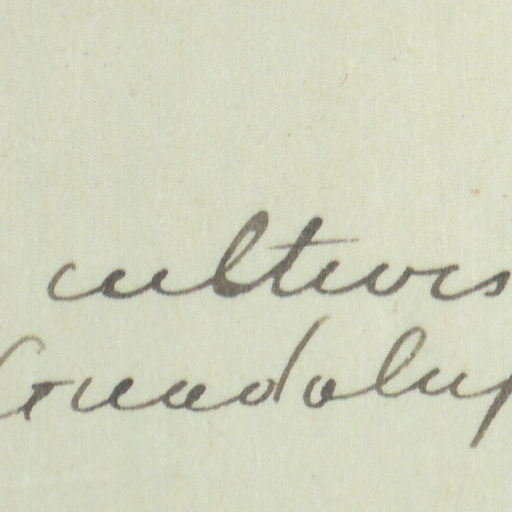 cultivars
Guadalup